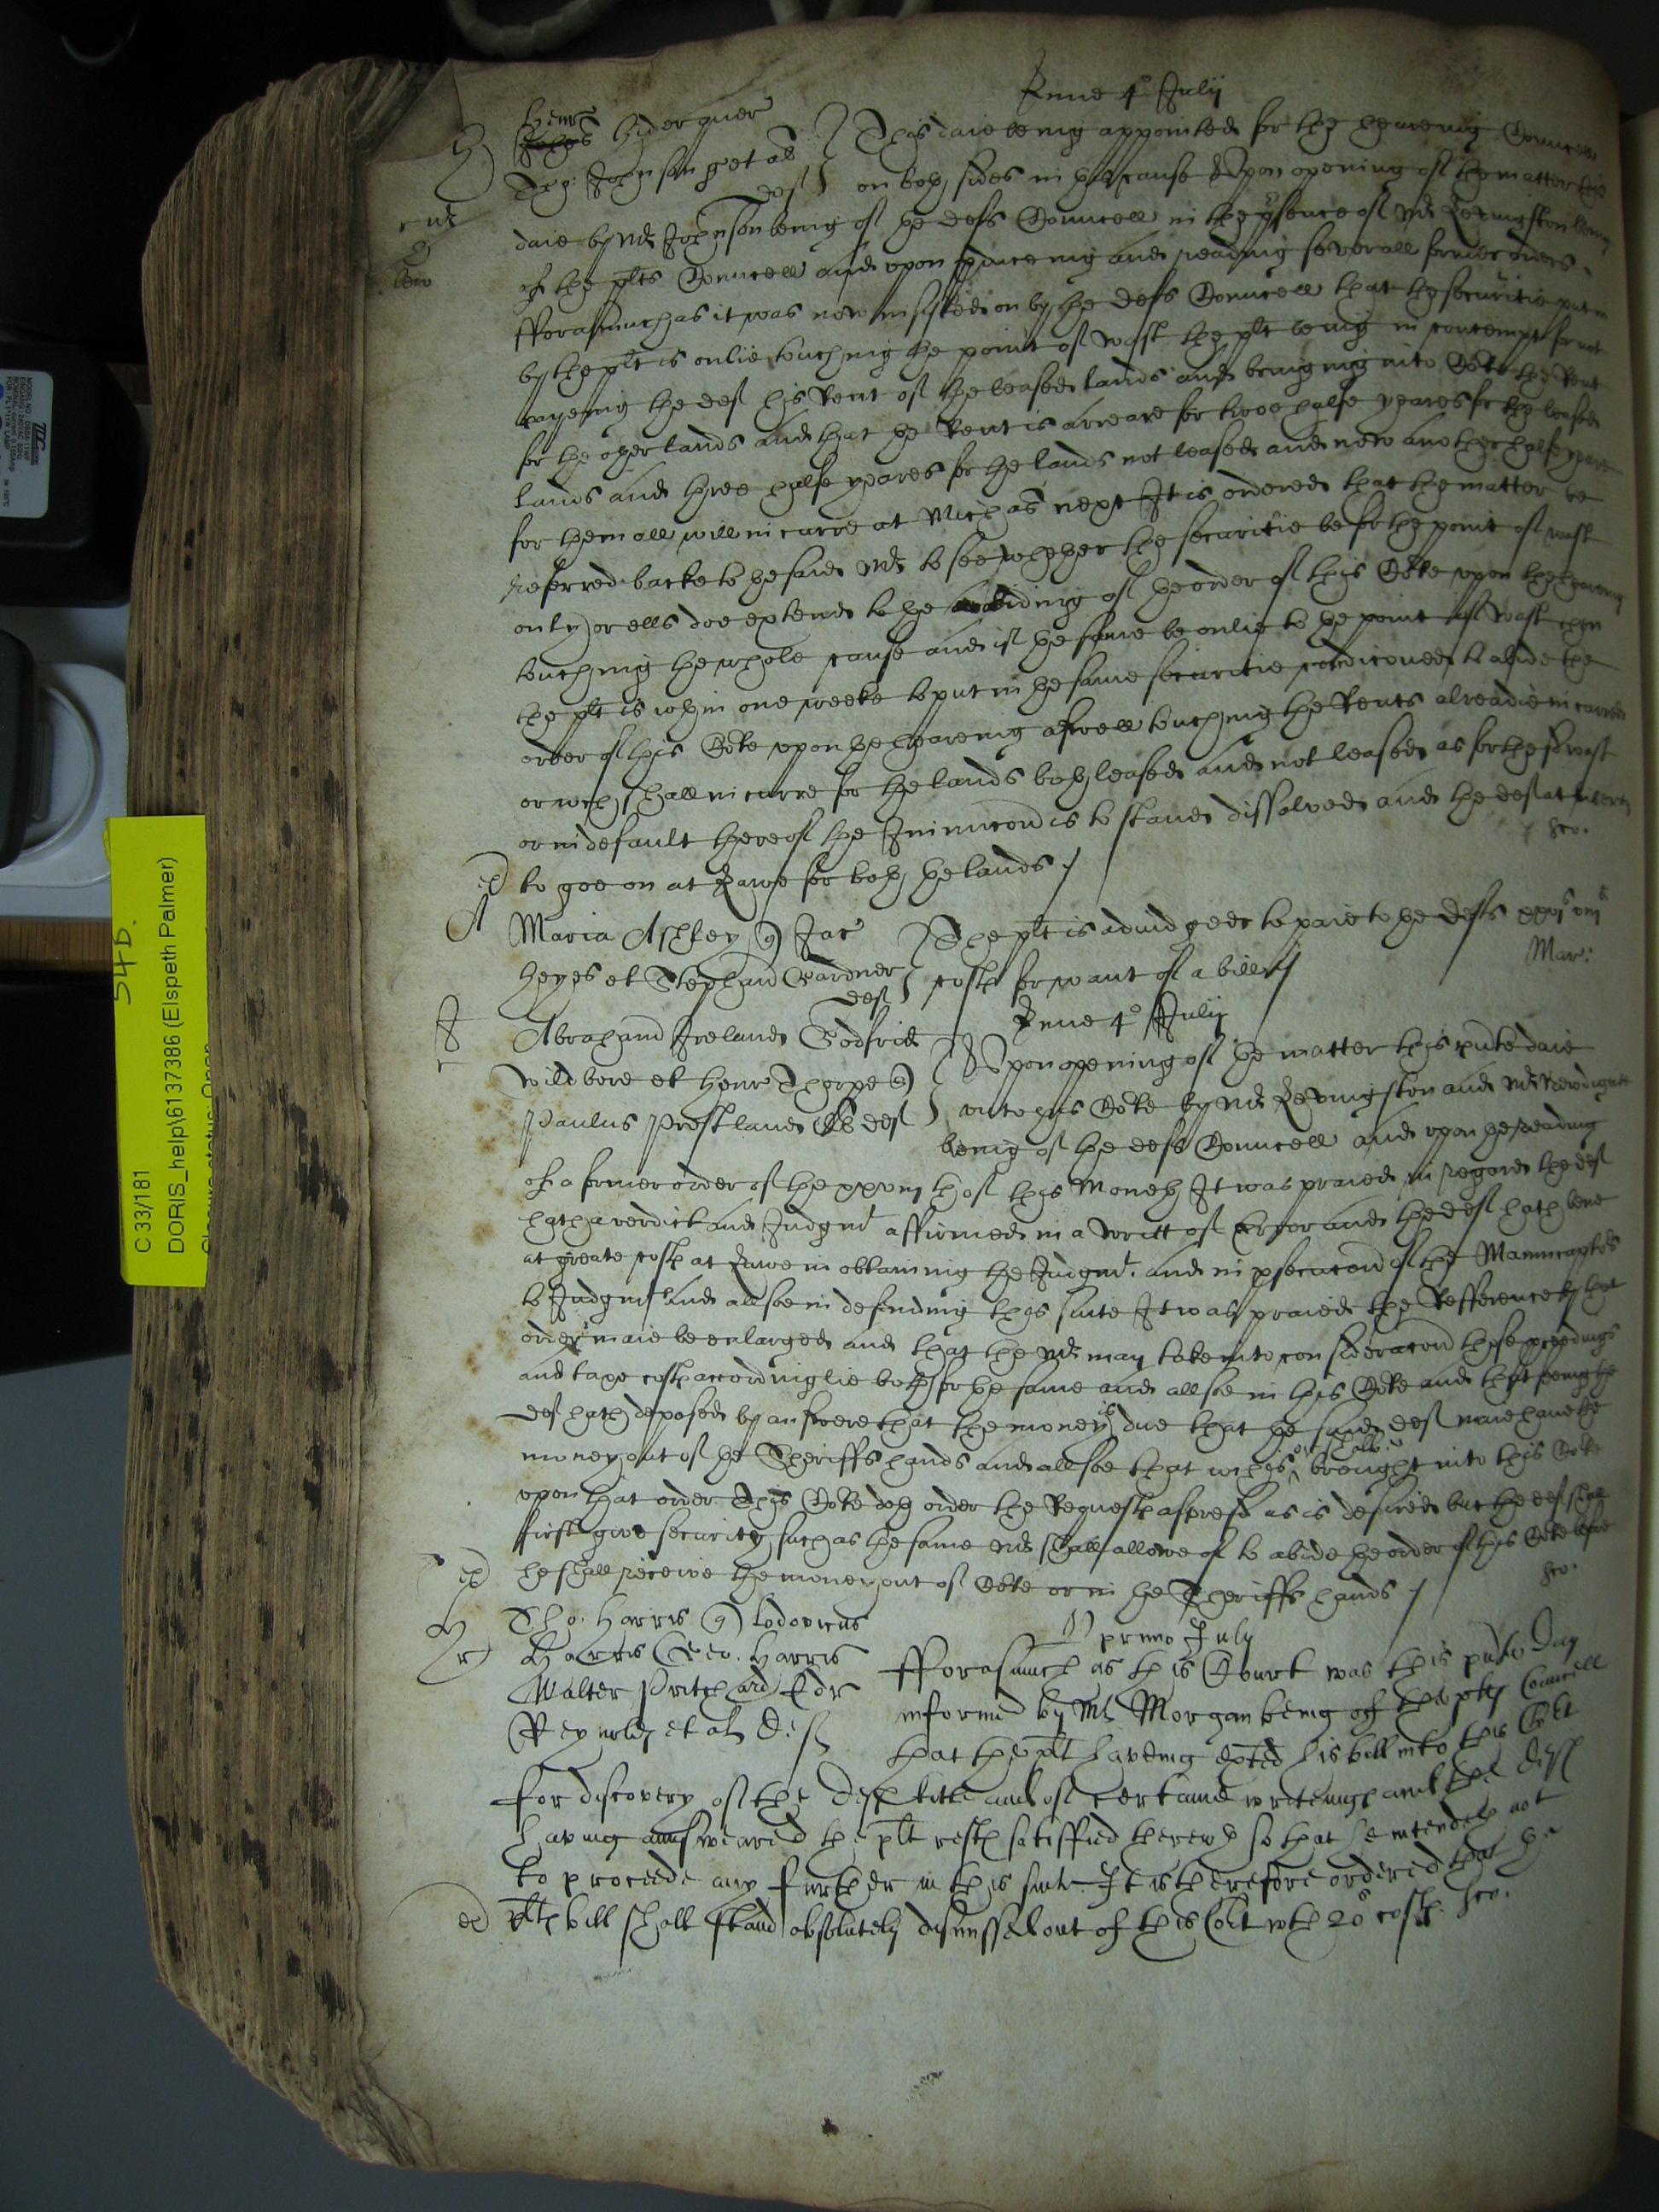 Lune 4° Julij
Henr Hider quer
Tho: Johnson et al def
This daie being appointed for the heareing Councell
on both sides in this cause & Upon opening of the matter this
daie by Mr Johnson being of the defts Councell in the psence of Mr Levingston being
of the plts Councell and upon produceing and reading severall former orders
fforasmuch as it was now insisted on by the defts Councell that the securitie put in
by the plt is onlie touching the point of wast the plt being in contempt for not
payeing the deft his Rent of the leased lands and bringing into Co:te the Rent
for the other lands and that the Rent is arreare for twoe halfe yeares for the leased
lands and three halfe yeares for the lands not leased and now another halfe yeare
for them all will incurre at Michas next It is ordered that the matter be
referred backe to the said Mr to see whether the securitie be for the point of wast
only or ells doe extend to the abiding of the order of this Co:te upon the heareing
touching the whole cause and if the same be onlie to the point of wast then
the plt is wthin one weeke to put in the same securitie condicioned to abide the
order of this Co:te upon the heareing aswell touching the Rents alreadie incurred
or wch shall incurre for the lands both leased and not leased as for the sd wast
or in default thereof the Iniunccon is to stand dissolved and the deft at libertie
to goe on at Lawe for both the lands /
Maria Ashley q Jac
heyes et Stephan Gardner def
The plt is adiudged to paie to the defts xxvjs viijd
costs for want of a bill //
Mar:
Lune 4° Julij
Abraham Ireland Godfrid
Wildbore et Henr Thorpe q
Paulus Prestland def
Upon opening of the matter this pnte daie
unto this Co:te by Mr Levingston and Mr Newdigate
being of the defts Councell and upon the reading
of a former order of the xxviijth of this Moneth It was praied in regard the deft
hath a verdict and Judgmt affirmed in a writt of Error and the deft hath bene
at greate costs at Lawe in obtaining the Judgmt. and in psecucion of the Manucaptors
to Judgmt And allsoe in defending this suite It was praied the Refference by that
order maie be enlarged and that the Mr may take into consideracon those pceedings
and taxe costs accordinglie both for the same and allsoe in this Co:te and that seeing the
deft hath deposed by answere that the money is due that the said deft maie have the
money out of the Sheriffs hands and allsoe that wch is or shalbe brought into this Co:te
upon that order This Co:te doth order the Requests aforesd as is desired but the deft shall
first give security such as the same Mr shall allowe of to abide the order of this Co:te before
he shall receive the money out of Co:te or in the Sheriffs hands /
Tho. Harris q Lodovicus
Harris Geo. Harris
Walter Pritchard Edr
Reynolds et al Defts
primo July
fforasmuch as this Court was this pnte Day
informed by Mr Morgan being of the plts Councell
that the plt haveing exted his bill into this Cort
for discovery of the Defts title and of certaine writeings and the Defts
having answeared the plt rests satisfied therewth so that he intendeth not
to proceede any further in this suite It is therefore ordered that the
plts bill shall stand absolutely dismissed out of this Cort wth 20s costs.
54D.
C 33/181
DORIS_help\6137386 (Elspeth Palmer)
Closure status: Open